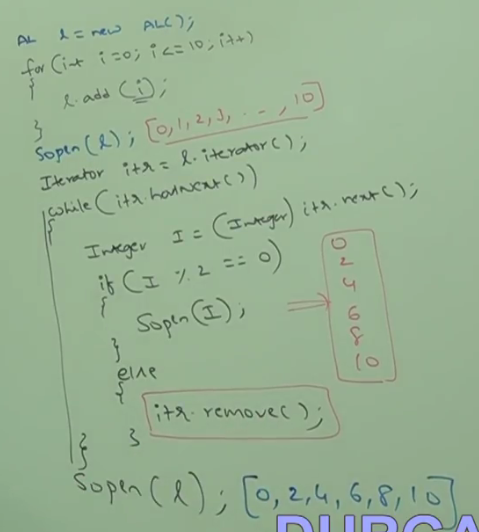 AL l = new AL();
for(int i=0; i<=10; i++)
{
l.add(i);
}
Sopln(l); [0,1,2,3, . - . ,10]
Iterator itr = l.iterator();
while(itr.hasNext())
{
Integer I = (Integer) itr.next();
if (I % 2 == 0)
{
Sopln(I); ⇒
0
2
4
6
8
10
}
else
{
itr.remove();
}
}
Sopln(l); [0,2,4,6,8,10]
DURGA